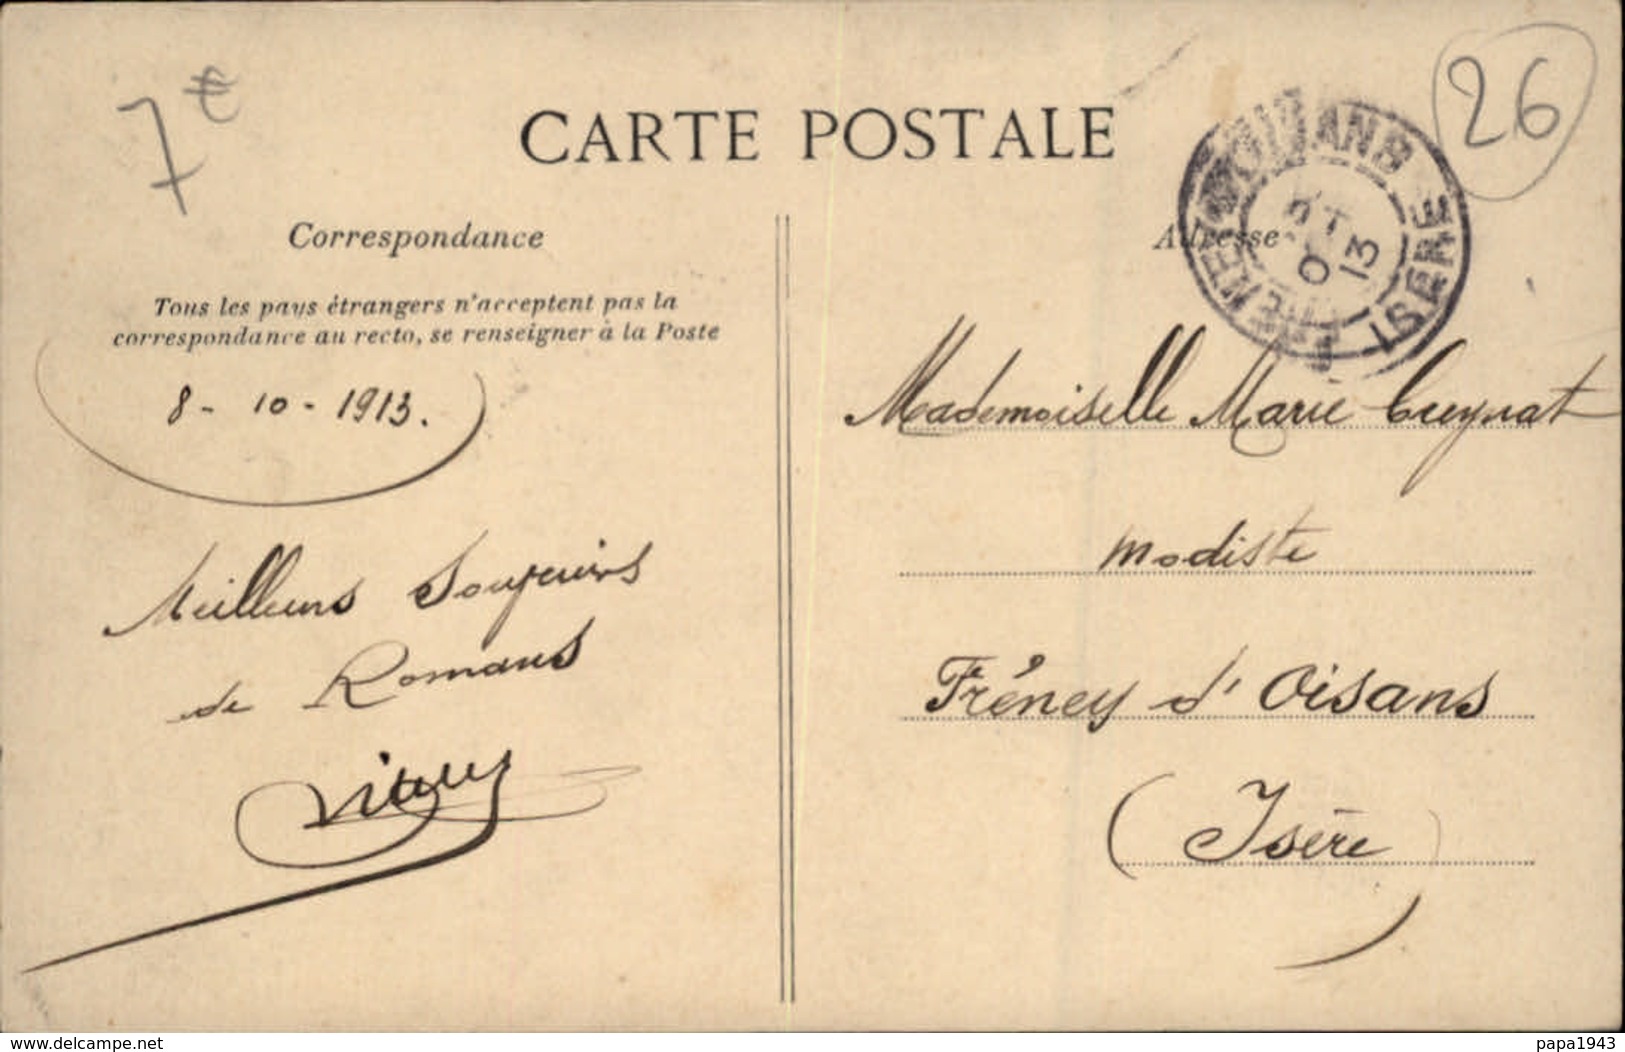 7€
26
CARTE POSTALE
Correspondance
Tous les pays étrangers n'acceptent pas la
correspondance au recto, se renseigner à la Poste
8 - 10 - 1913.
Meilleurs Souvenirs
de Romans
Adresse
OISANS
ISERE
13
Mademoiselle Marie
Modiste
Fréney d'Oisans
(Isère)
www.delcampe.net
papa1943